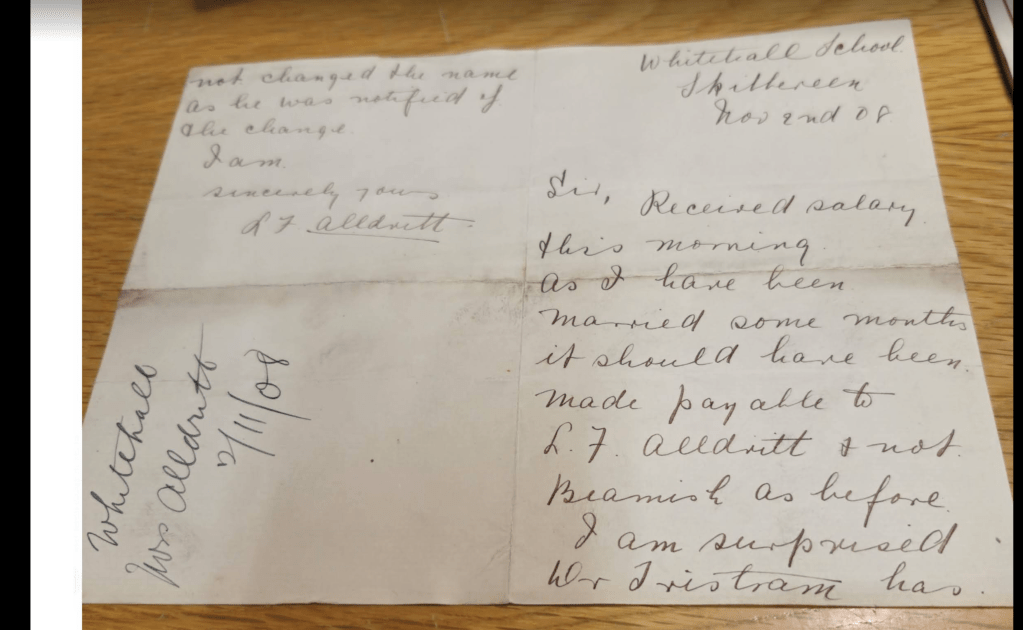 Whitehall School
Skibbereen
Nov 2nd 08
Sir, Received salary
this morning
as I have been
married some months
it should have been
made payable to
L. F. Alldritt & not
Beamish as before.
I am surprised
Dr Tristram has
not changed the name
as he was notified of
the change.
I am
sincerely yours
L F Alldritt
Whitehall
Mrs Alldritt
2/11/08